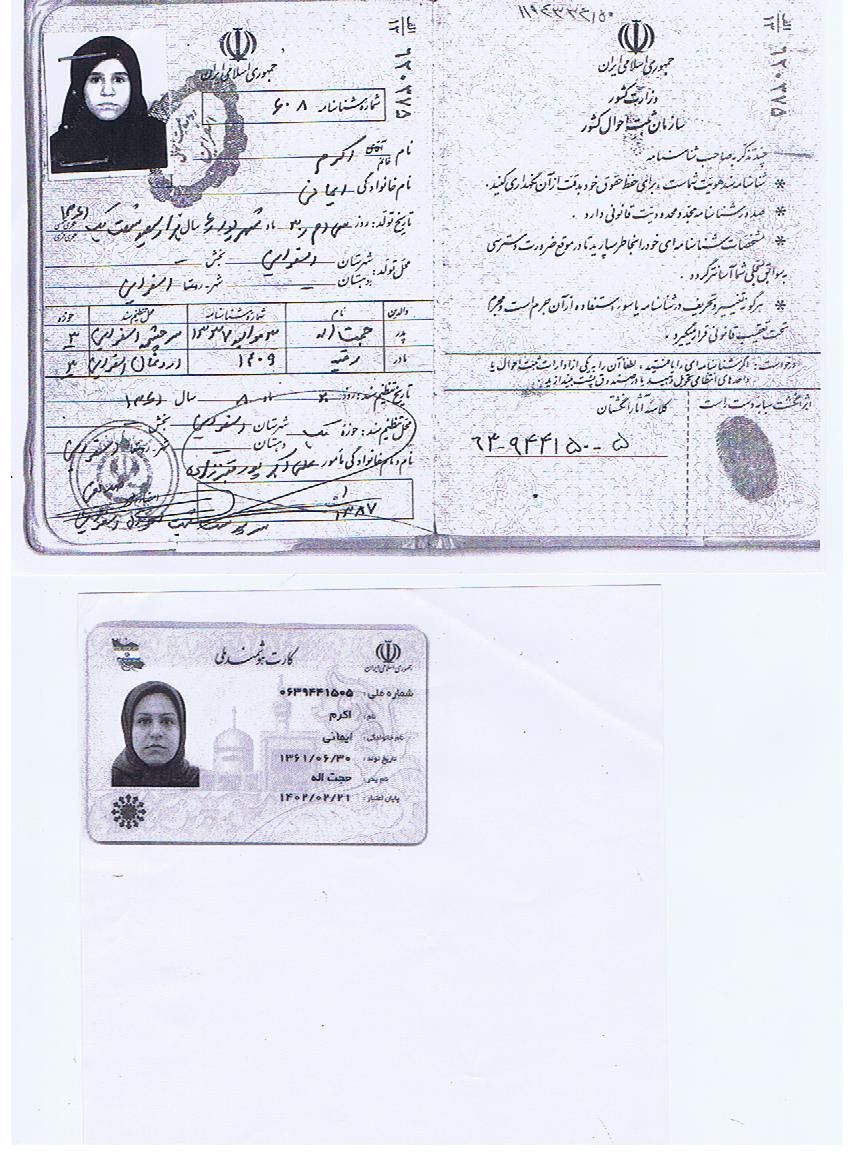 جمهوری اسلامی ایران
شماره شناسنامه ۶۰۸
نام آقای خانم اکرم
نام خانوادگی ایمانی
تاریخ تولد: روز سی ام ۳۰ ماه شهریور ۶ سال هزار و سیصد و شصت یک ۱۳۶۱
محل تولد: شهرستان اسفراین بخش –
دهستان – شهر- روستا اسفراین
والدین نام شماره شناسنامه محل تنظیم سند حوزه
پدر حجت اله ۱۳۳۷ سرچشمه اسفراین ۳
مادر رقیه ۱۴۰۹ اردغان اسفراین ۳
تاریخ تنظیم سند: روز ۲۰ ماه ۸ سال ۱۳۶۱
محل تنظیم سند: حوزه یک شهرستان اسفراین بخش –
دهستان – شهر- روستا اسفراین
نام و نام خانوادگی مأمور علی اکبر پور
۱۳۸۷
الف
۱۲
۹۲۰۲۷۵
جمهوری اسلامی ایران
وزارت کشور
سازمان ثبت احوال کشور
چند تذکر به صاحب شناسنامه
* شناسنامه سند هویت شماست، برای حفظ حقوق خود به دقت از آن نگهداری کنید.
* صدور شناسنامه مجدد محدودیت قانونی دارد.
* مشخصات شناسنامه ای خود را بخاطر بسپارید تا در موقع ضرورت دسترسی
به سوابق سجلی شما آسانتر گردد.
* هرگونه تغییر و تحریف در شناسنامه یا سوء استفاده از آن جرم است و مجرم
تحت تعقیب قانونی قرار میگیرد.
درخواست: اگر شناسنامه ای را یافتید، لطفاً آن را به یکی از ادارات ثبت احوال یا
واحدهای انتظامی تحویل دهید یا در صندوق پست بیندازید.
اثر انگشت سبابه دست راست
کلاسه آثار انگشتان
۰۶۳-۹۴۴۱۵۰-۵
کارت هوشمند ملی
جمهوری اسلامی ایران
شماره ملی: ۰۶۳۹۴۴۱۵۰۵
نام: اکرم
نام خانوادگی: ایمانی
تاریخ تولد: ۱۳۶۱/۰۶/۳۰
نام پدر: حجت اله
پایان اعتبار: ۱۴۰۲/۰۲/۲۱